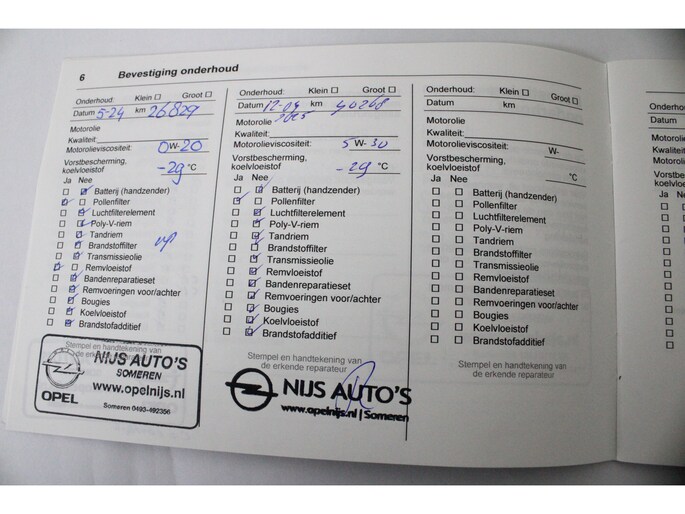 6 Bevestiging onderhoud
Onderhoud: Klein ☐ Groot ☐
Datum 5-24 km 26829
Motorolie
Kwaliteit:
Motorolieviscositeit: 0 W- 20
Vorstbescherming,
koelvloeistof -29 °C
Ja Nee
Batterij (handzender)
Pollenfilter
Luchtfilterelement
Poly-V-riem
Tandriem
Brandstoffilter
Transmissieolie
Remvloeistof
Bandenreparatieset
Remvoeringen voor/achter
Bougies
Koelvloeistof
Brandstofadditief
Stempel en handtekening van
de erkende reparateur
NIJS AUTO'S
SOMEREN
www.opelnijs.nl
OPEL
Someren 0493-492356
Onderhoud: Klein ☐ Groot ☐
Datum 12-04 km 40268
2025
Motorolie
Kwaliteit:
Motorolieviscositeit: 5 W- 30
Vorstbescherming,
koelvloeistof -29 °C
Ja Nee
Batterij (handzender)
Pollenfilter
Luchtfilterelement
Poly-V-riem
Tandriem
Brandstoffilter
Transmissieolie
Remvloeistof
Bandenreparatieset
Remvoeringen voor/achter
Bougies
Koelvloeistof
Brandstofadditief
Stempel en handtekening van
de erkende reparateur
NIJS AUTO'S
www.opelnijs.nl | Someren
Onderhoud: Klein ☐ Groot ☐
Datum km
Motorolie
Kwaliteit:
Motorolieviscositeit: W-
Vorstbescherming,
koelvloeistof °C
Ja Nee
Batterij (handzender)
Pollenfilter
Luchtfilterelement
Poly-V-riem
Tandriem
Brandstoffilter
Transmissieolie
Remvloeistof
Bandenreparatieset
Remvoeringen voor/achter
Bougies
Koelvloeistof
Brandstofadditief
Stempel en handtekening van
de erkende reparateur
Datum
Motorolie
Kwaliteit:
koelvloeis
Ja Nee